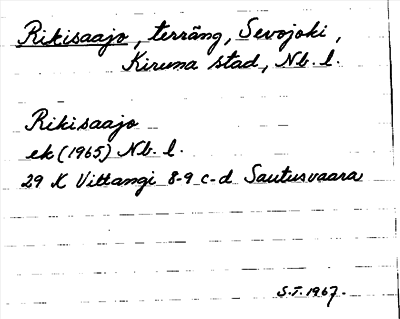 Rikisaajo, terräng, Sevojoki,
Kiruna stad, Nb. l.
Rikisaajo
ek (1965) Nb. l.
29 K Vittangi 8-9 c-d Sautusvaara
S.T. 1967.